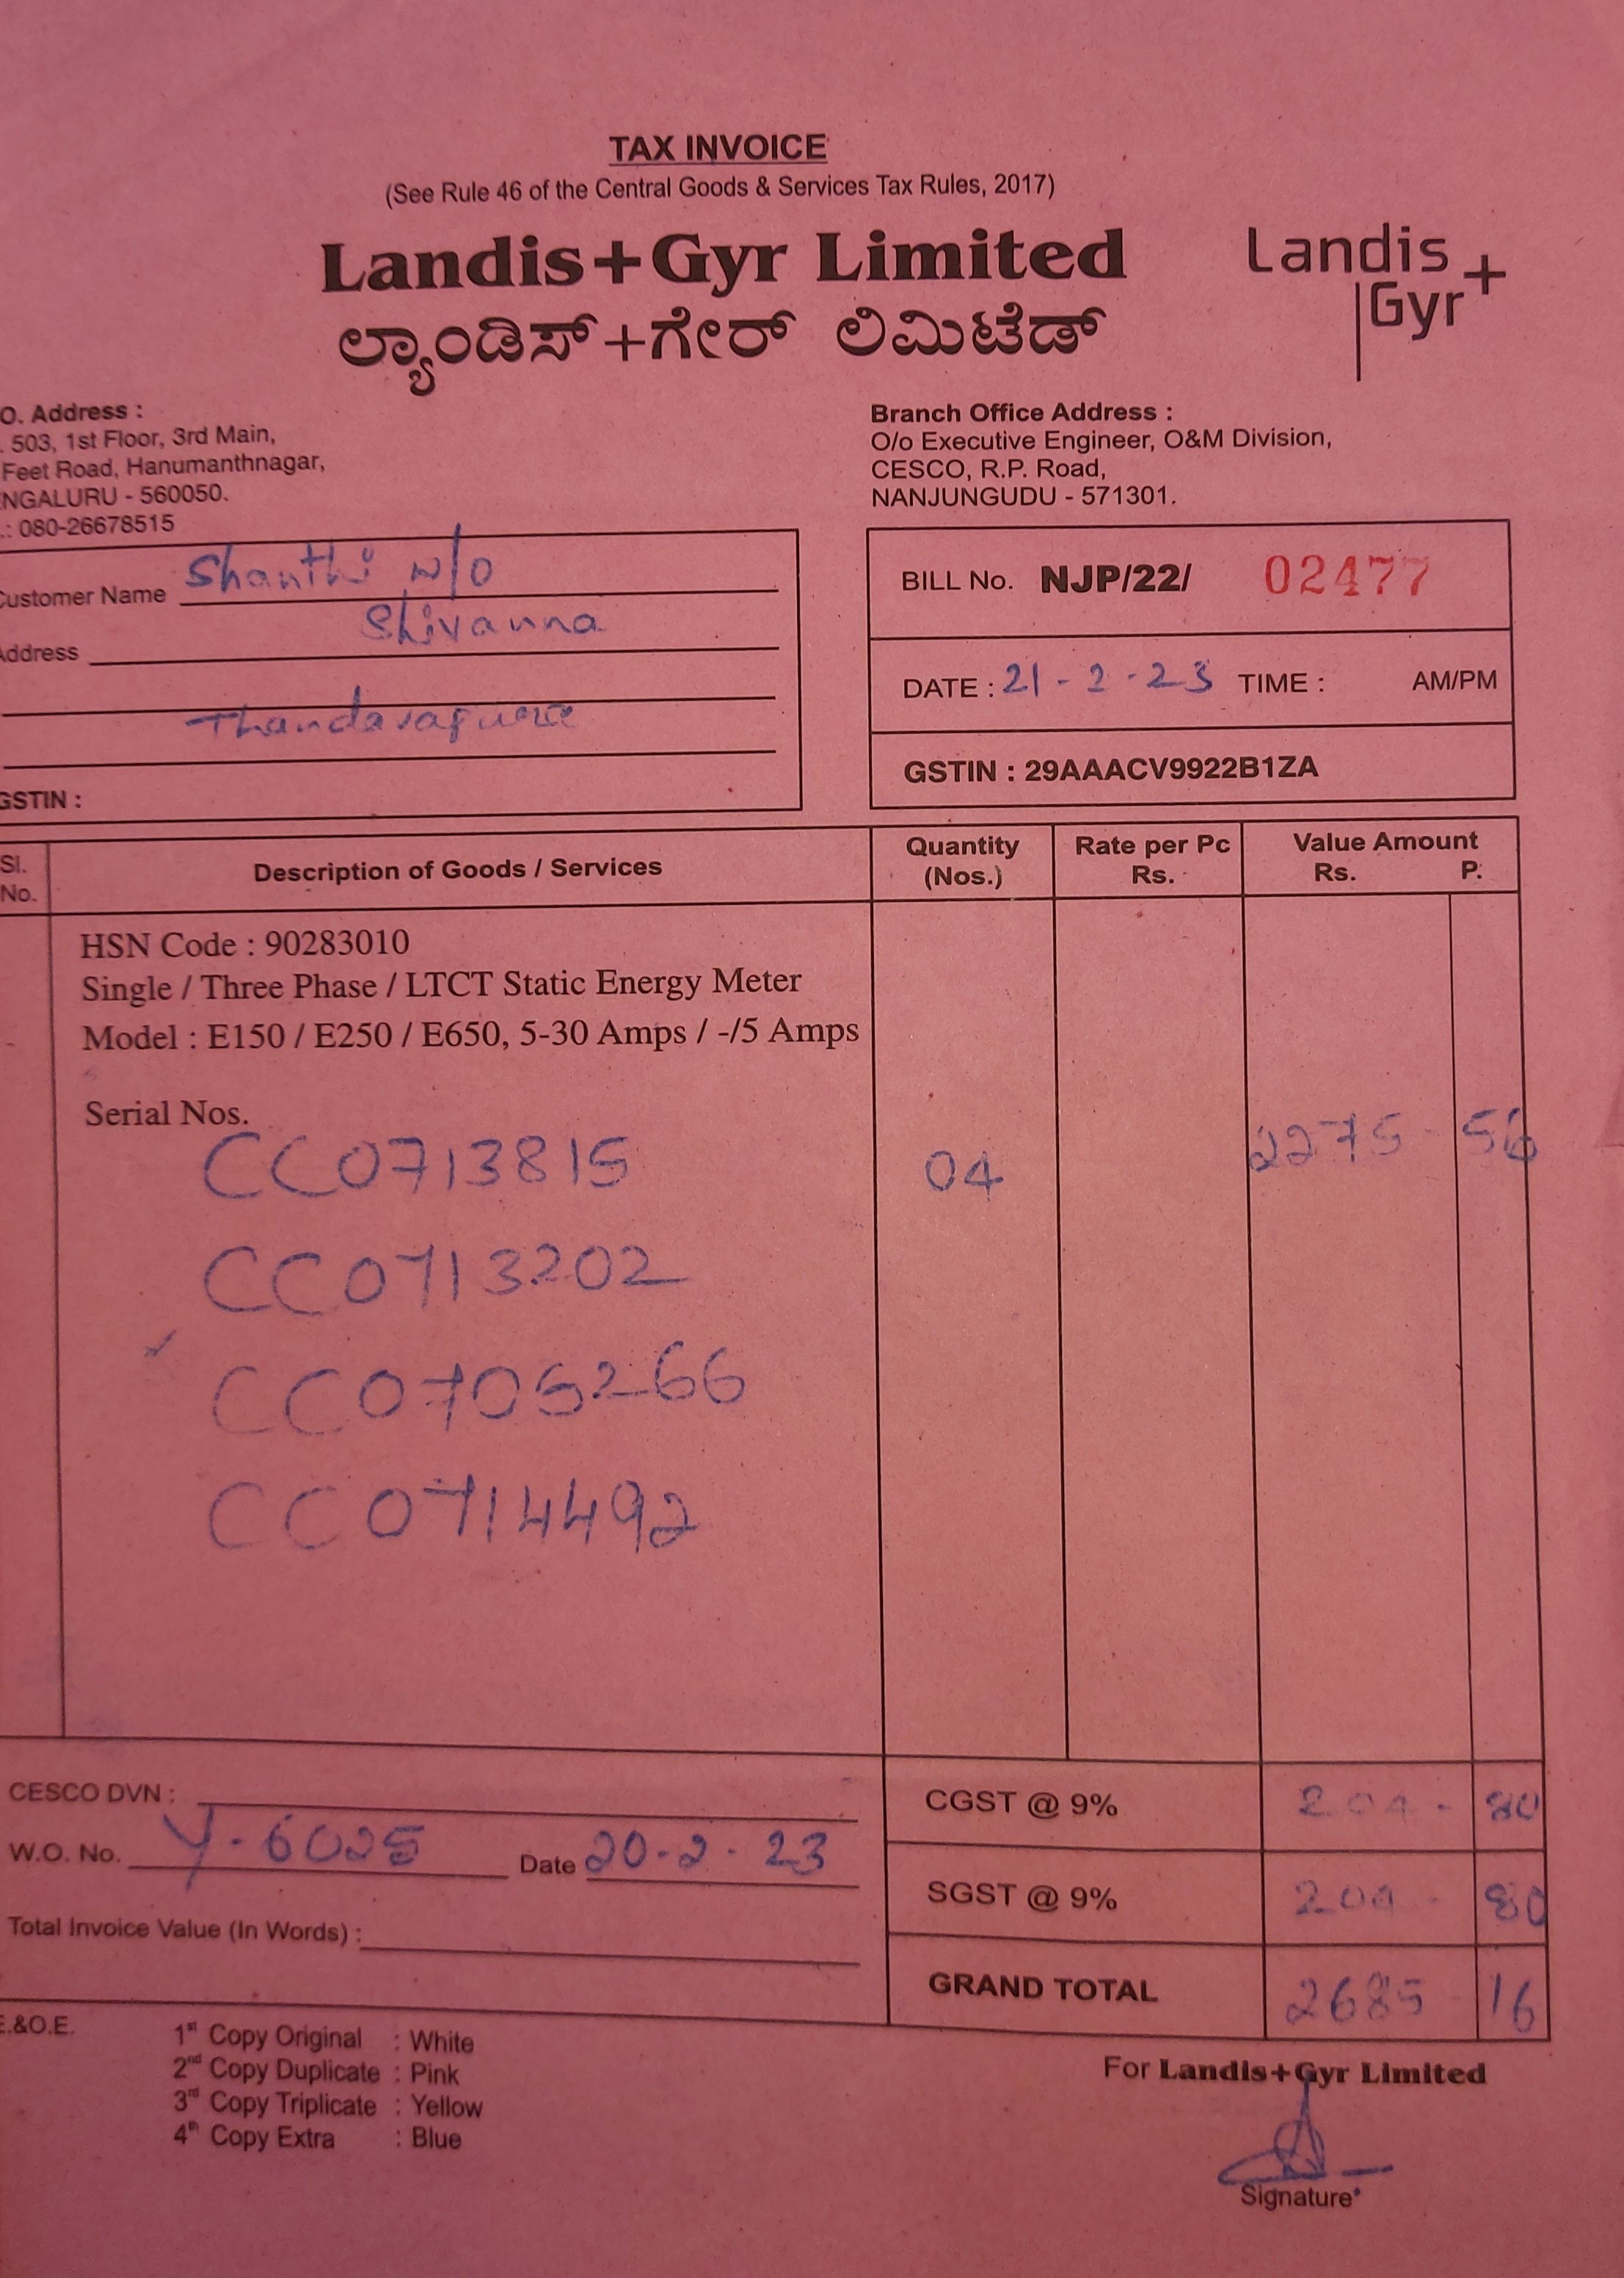 TAX INVOICE
(See Rule 46 of the Central Goods & Services Tax Rules, 2017)
Landis+Gyr Limited
ಲ್ಯಾಂಡಿಸ್+ಗೇರ್ ಲಿಮಿಟೆಡ್
Landis+
Gyr
O. Address :
. 503, 1st Floor, 3rd Main,
Feet Road, Hanumanthnagar,
NGALURU - 560050.
.: 080-26678515
Branch Office Address :
O/o Executive Engineer, O&M Division,
CESCO, R.P. Road,
NANJUNGUDU - 571301.
Customer Name Shanthi w/o
Shivanna
Address
Thandavapura
GSTIN :
BILL No. NJP/22/ 02477
DATE : 21-2-23 TIME : AM/PM
GSTIN : 29AAACV9922B1ZA
Sl. No. Description of Goods / Services Quantity (Nos.) Rate per Pc Rs. Value Amount Rs. P.
HSN Code : 90283010
Single / Three Phase / LTCT Static Energy Meter
Model : E150 / E250 / E650, 5-30 Amps / -/5 Amps
Serial Nos.
CC0713815 04 2275-56
CC0713202
CC0705266
CC0714492
CESCO DVN :
W.O. No. Y-6025 Date 20-2-23
Total Invoice Value (In Words) :
CGST @ 9% 204-80
SGST @ 9% 204-80
GRAND TOTAL 2685 16
E.&O.E.
1st Copy Original : White
2nd Copy Duplicate : Pink
3rd Copy Triplicate : Yellow
4th Copy Extra : Blue
For Landis+Gyr Limited
Signature